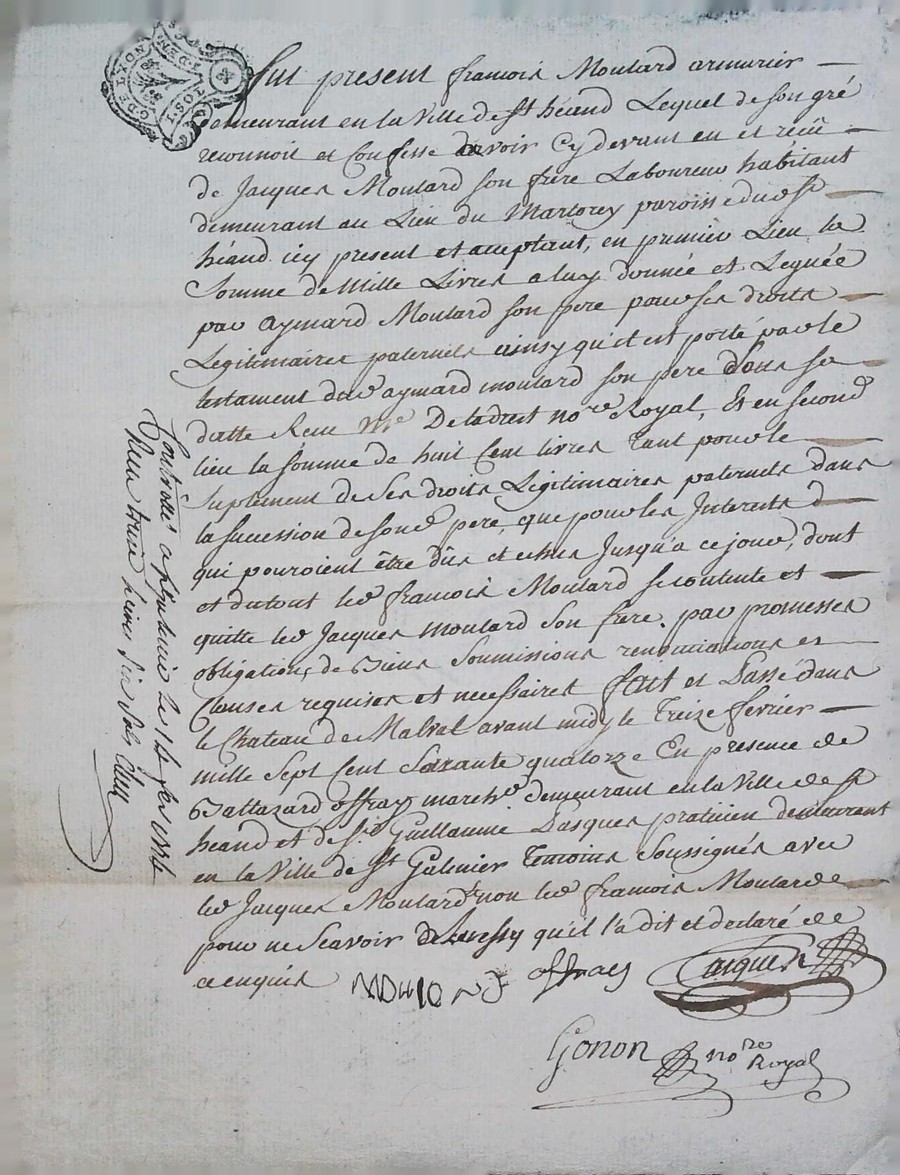 GDE LYON
1.SOL
Fut present francois Moulard armurier
demeurant en la Ville de St héand Lequel de son gré
reconnoit et Confesse avoir Cy devant eu et recü
de Jacques Moulard son frère Laboureur habitant
demeurant au Lieu du Martorey paroisse dud St
héand icy present et acceptant, en premier Lieu la
Somme de Mille Livres a luy donnée et Leguée
par aymard Moulard son pere pour ses droits
Legitimaires paternels ainsy qu'il est porté par le
testament dud aymard moulard son pere dans sa
datte Receu Me Deladret nore Royal, Et en second
lieu la somme de huit Cent livres tant pour le
suplement de Ses droits Légitimaires paternels dans
la succession de soned pere, que pour les Interets
qui pouroient être düs et echus Jusqu'a ce jour, dont
et du tout led francois Moulard se contente et
quitte led Jacques Moulard Son frere. par promesses
obligations de Biens Soumissions renontiations et
Clauses requises et necessaires fait et Passé dans
le Chateau de Malval avant midy le Treize fevrier
mille Sept Cent Soixante quatorze En presence de
Baltazard offray marchd demeurant en la Ville de St
heand et de Sr Guillaume Jasques praticien demeurant
en la Ville de St Galmier Temoins Soussignés avec
led Jacques Moulard non led francois Moulard
pour ne Scavoir qu'il l'a dit et declaré de
ce enquis
offray
Gonon nore Royal
Controllé a le 14 fev 1774
Reçu treize livres six sols